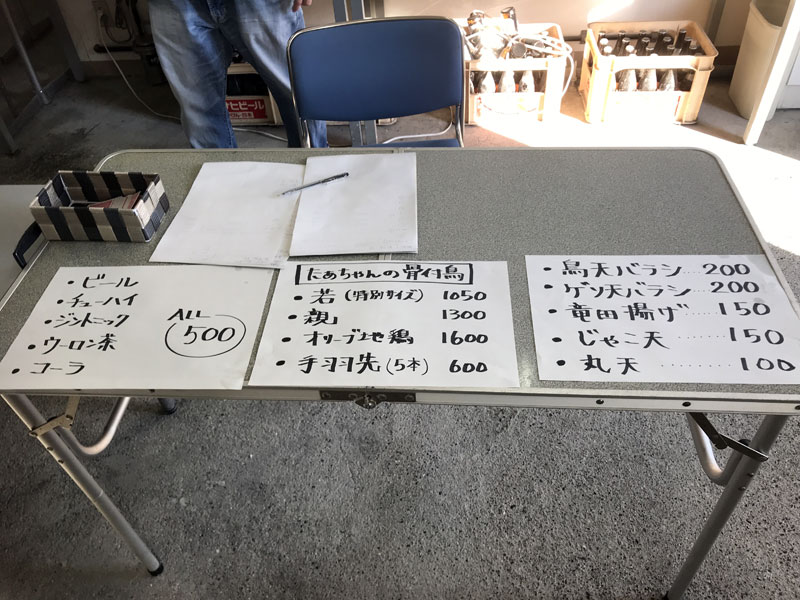 ・ビール
・チューハイ
・ジントニック
・ウーロン茶
・コーラ
ALL
500
にぁちゃんの骨付鳥
・若(特別サイズ) 1050
・親 1300
・オリーブ地鶏 1600
・手羽先(5本) 600
・鳥天バラシ……200
・ゲソ天バラシ……200
・竜田揚げ……150
・じゃこ天………150
・丸天………100
サヒビール